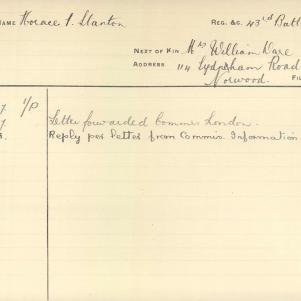 NAME Horace P. Stanton REG. &C. 43rd Batt
NEXT OF KIN Mrs William Dare
ADDRESS 114 Sydenham Road
Norwood. FI
7. 1/P
7 Letter forwarded Commis London.
Reply per letter from Commis. Information